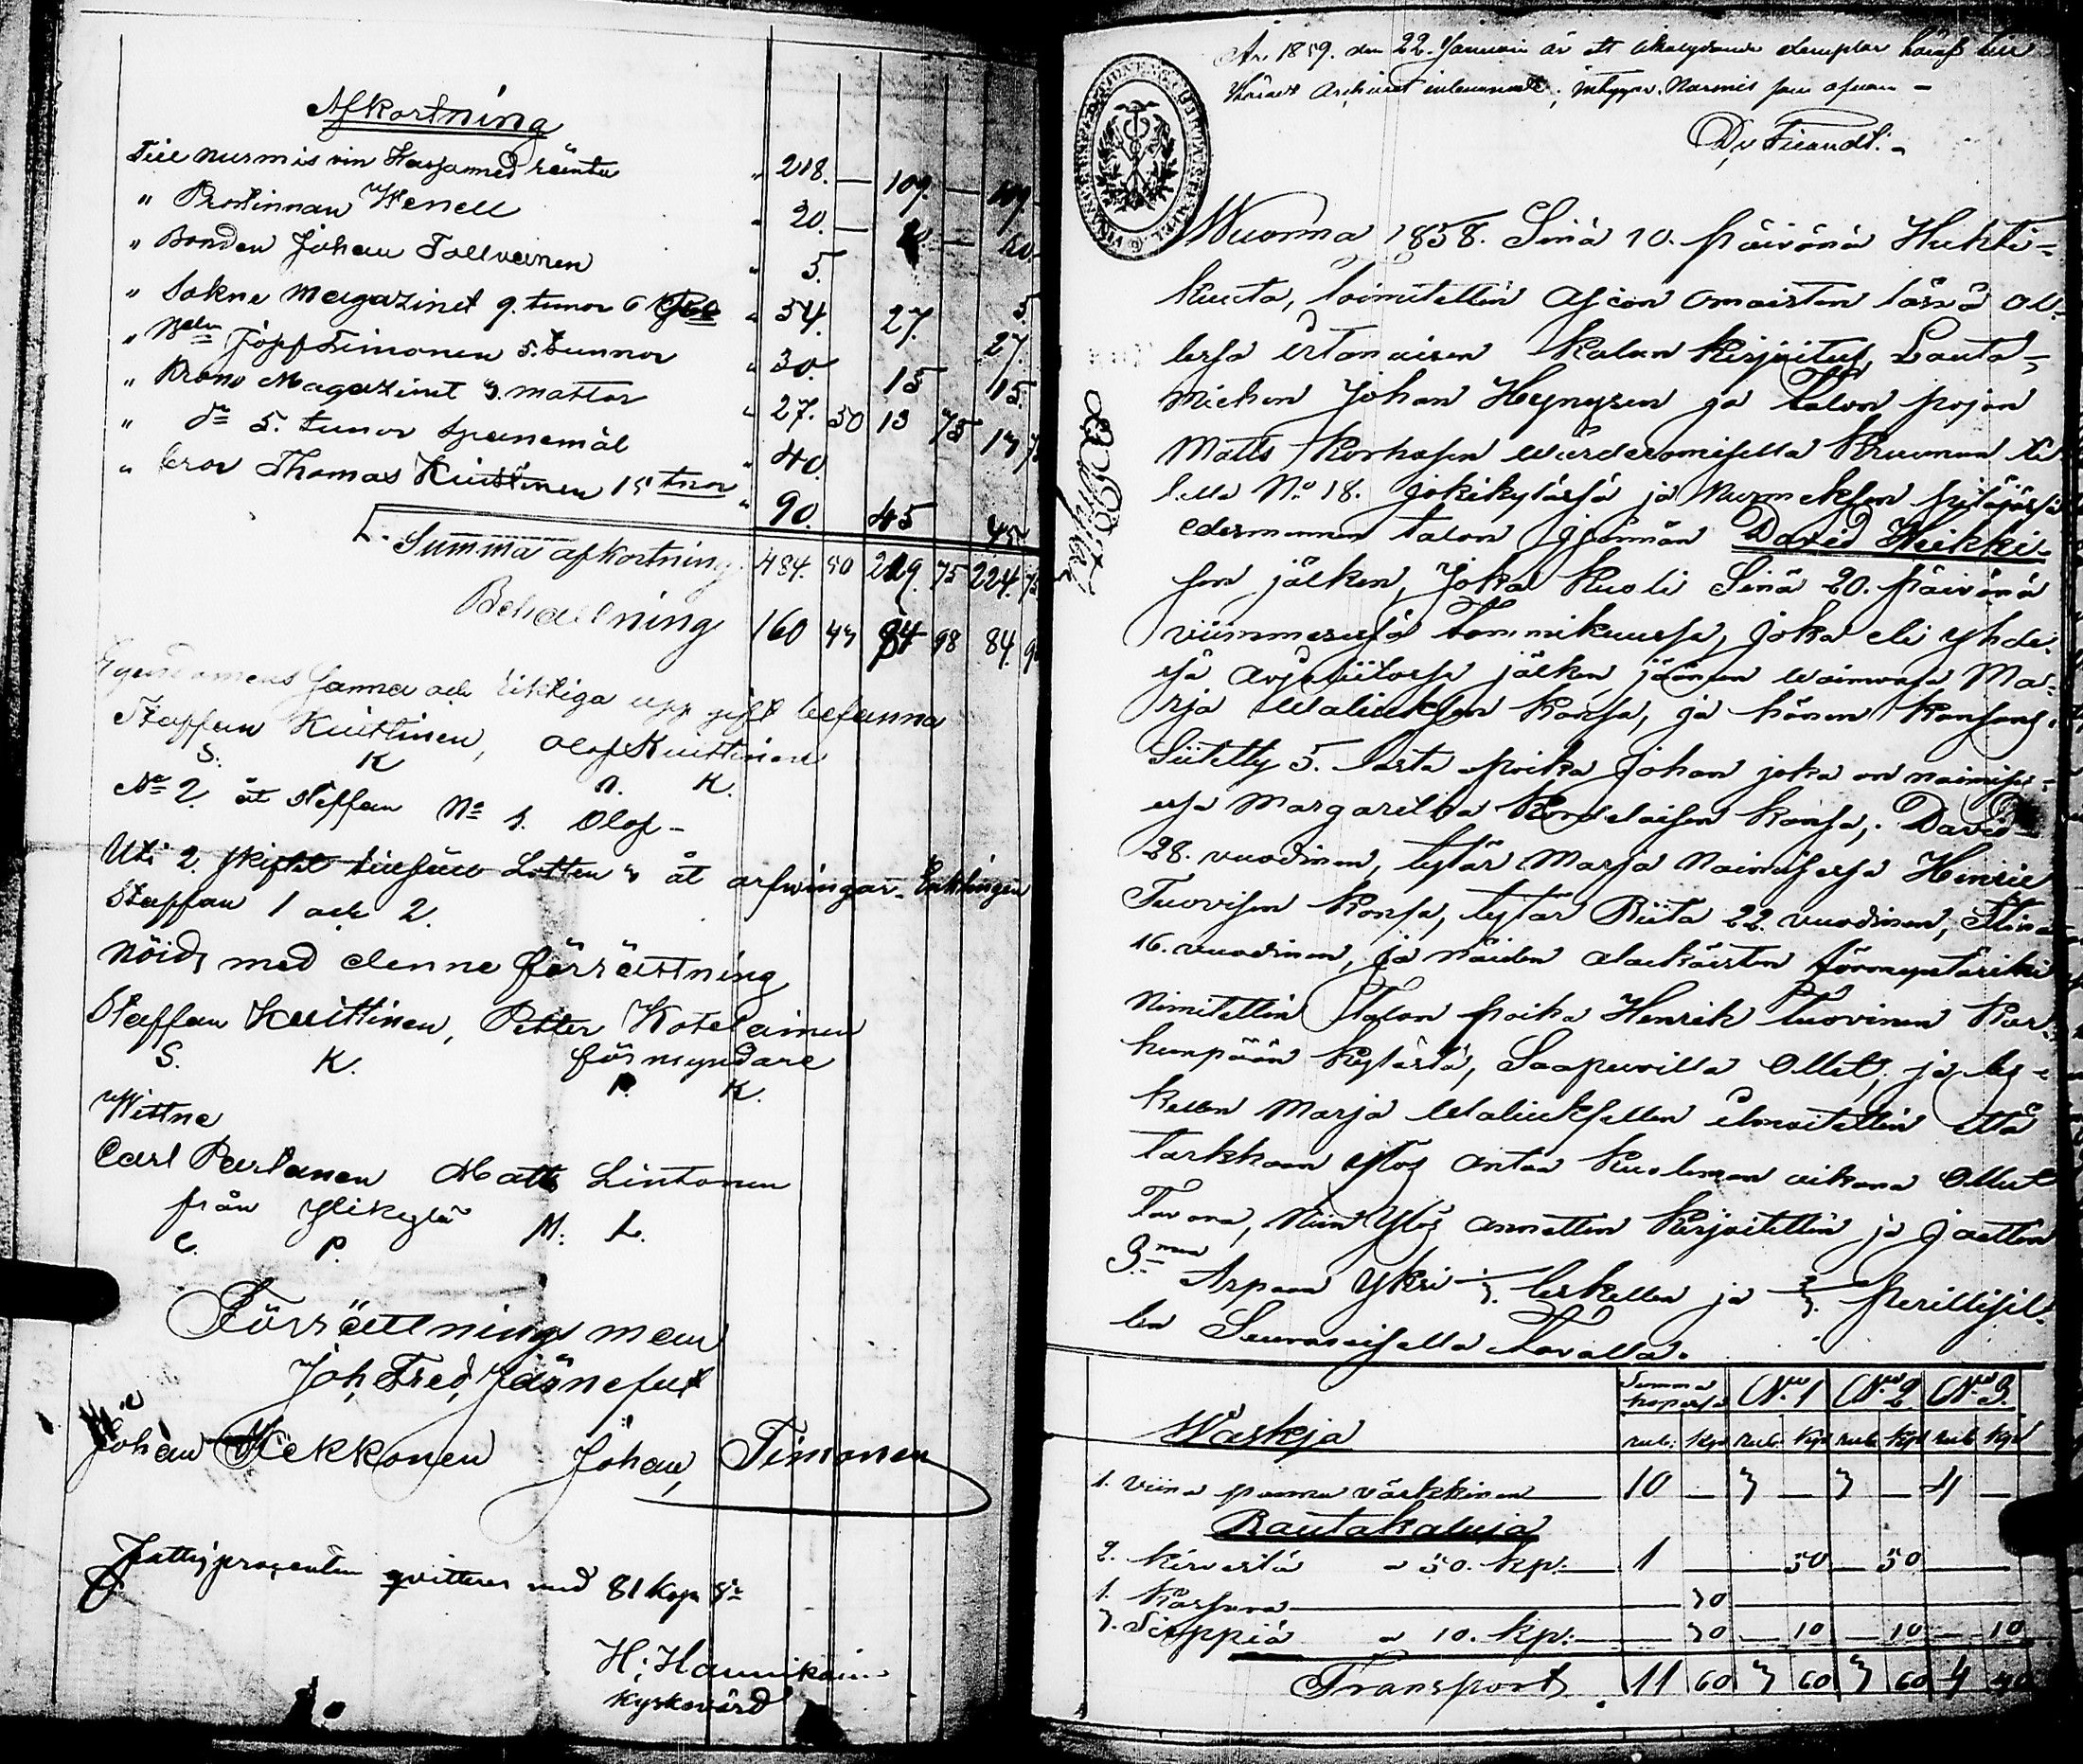 Afkortning
Till Nurmis vin Kassan med ränta " 218. — 109. — 109.
" Prostinnan Wenell " 20. — — 20
" Bonden Johan Tolvanen " 5. 5.
" Sokne Magazinet 9. tunor 6 " 54. 27. 27.
" Jöpf Timonen 5. tunnor " 30. 15 15.
" Krono Magazinet 3. mattor " 27. 50 13 75 13 75
" do 5. tunor Spanemål " 40.
" bror Thomas Kuittinen 15 tnor " 90. 45 45
Summa afkortning 484. 50 219. 75 224. 75
Behållning 160 43 84 98 84. 98
Egendomens samma och riktiga upp gift befanna
Staffan Kuittinen, Olof Kuittinen
S. K O. K.
No 2 åt Steffan No 1. Olof -
Uti 2. skiftet tillföll Lotten 3 åt arfwingar Enklingen
Staffan 1 och 2.
Nöjda med denne förrättning
Staffan Kuittinen, Petter Kotelainen
S. K. förmyndare
P. K.
Wittne
Carl Partanen Matts Lintonen
från Ylikylä M: L.
C. P.
Förrättnings man
Joh, Fred, Järnefelt
Johan Hekkonen Johan Timonen
Fattigprocenten qvitteras med 81 kop Sr
H: Hannikain
Kyrkovärd
År 1859. den 22. Januari är ett lika lydande Exemplar häraf till
Härads Archivet inlemnadt; intygar. Nurmis som ofvan -
D, v Fieandt. -
Wuonna 1858. Sinä 10. päivänä Huhti=
kuuta, toimitettin Asian omaisten läsnä ol-
lessa irtanaisen kalun kirjoitus, Lauta-
miehen Johan Heynysen ja Talon pojan
Matts Korhosen wärderamisella Kruunun ti
lalla No 18. Jokikylässä ja Nurmeksen pitäjässä
edesmennen talon isännän David Heikki-
sen jälken, Joka kuoli Sinä 20. päivänä
viimmeisessä Tammikuussa, joka eli yhde-
ssä avioliitossa jälken jäänen waimonsa Ma-
rja Waliuksen kansa, ja hänen kansans
Siitetty 5. lasta poika Johan joka on naimises-
essa Margaretha Kondelaisen kansa; David
28. vuodinen, tytär Marja Naimisessa Henric
Tuovisen kansa, tytär Riita 22. vuodinen, Stina
16. vuodinen, ja näiden alaikäisten förmyntäriksi
Nimitettin Talon poika Henrik Tuovinen Kar-
hunpään kylästä, Saapuvilla Ollet, ja les-
kellen Marja Waliuksellen ilmoitettin että
tarkkaan ylös antaa kuoleman aikana Ollut
Tavara, Niin Ylös annettin kirjoitettin ja jaettin
3:men Arpaan Yksi 1/3. leskellen ja 2/3. perillisil-
len Seuravaisella tavalla.
Summa kopassa No 1 No 2 No 3.
Waskja rub: kp rub. kp rub kp rub kp
1. viina panna värkkinen 10 — 3 — 3 — 4 —
Rautakaluja
2. kirvestä a 50. kp: 1 50 50
1. kassara 30
3. Sirppiä a 10. kp: 30 10 10 10
Transport 11 60 3 60 3 60 4 40